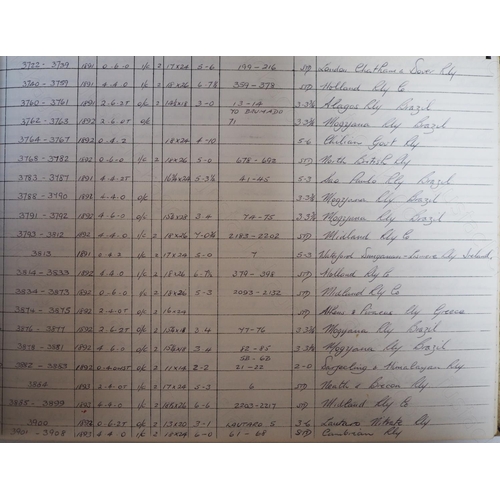 3722 - 3739 1891 0-6-0 I/C 2 17x24 5-6 199-216 STD London Chatham & Dover Rly
3740 - 3759 1891 4-4-0 I/C 2 18x26 6-7½ 359-378 STD Holland Rly Co
3760 - 3761 1891 2-6-2T O/C 2 3-0 13-14 3-3⅜ Alagoas Rly Brazil
3762 - 3763 1892 2-6-0T O/C 71 3-3⅜ Mogyana Rly Brazil
3764 - 3767 1892 0-4-2 18x24 4-10 5-6 Chilian Govt Rly
3768 - 3782 1892 0-6-0 I/C 2 18x26 5-0 678-692 STD North British Rly
3783 - 3787 1891 4-4-0 5-3½ 41-45 5-3 Sao Paulo Rly Brazil
3788 - 3790 1892 4-4-0 O/C 3-3⅜ Mogyana Rly Brazil
3791 - 3792 1892 4-4-0 O/C 2 3-4 74-75 3-3⅜ Mogyana Rly Brazil
3793 - 3812 1892 4-4-0 I/C 2 18x26 7-0½ 2183-2202 STD Midland Rly Co
3813 1891 0-4-2 I/C 2 17x24 5-0 7 5-3 Waterford Dungarvan & Lismore Rly Ireland
3814 - 3833 1892 4-4-0 I/C 2 18x26 6-7½ 379-398 STD Holland Rly Co
3834 - 3873 1892 0-6-0 I/C 2 18x26 5-3 2093-2132 STD Midland Rly Co
3874 - 3875 1892 2-4-0T I/C 2 16x24 STD Athens & Piraeus Rly Greece
3876 - 3877 1892 2-6-2T O/C 2 3-4 77-76 3-3⅜ Mogyana Rly Brazil
3878 - 3881 1892 4-6-0 O/C 2 3-4 3-3⅜ Mogyana Rly Brazil
3882 - 3883 1892 0-4-0ST O/C 2 11x14 2-2 21-22 2-0 Darjeeling & Himalayan Rly
3884 1893 2-4-0T I/C 2 17x24 5-3 6 STD Neath & Brecon Rly
3885 - 3899 1892 4-4-0 I/C 2 6-6 2203-2217 STD Midland Rly Co
3900 1892 0-6-2T O/C 2 13x20 3-1 LAUTARO 5 3-6 Lautaro Nitrate Rly
3901 - 3908 1893 4-4-0 I/C 2 18x24 6-0 61-68 STD Cambrian Rly